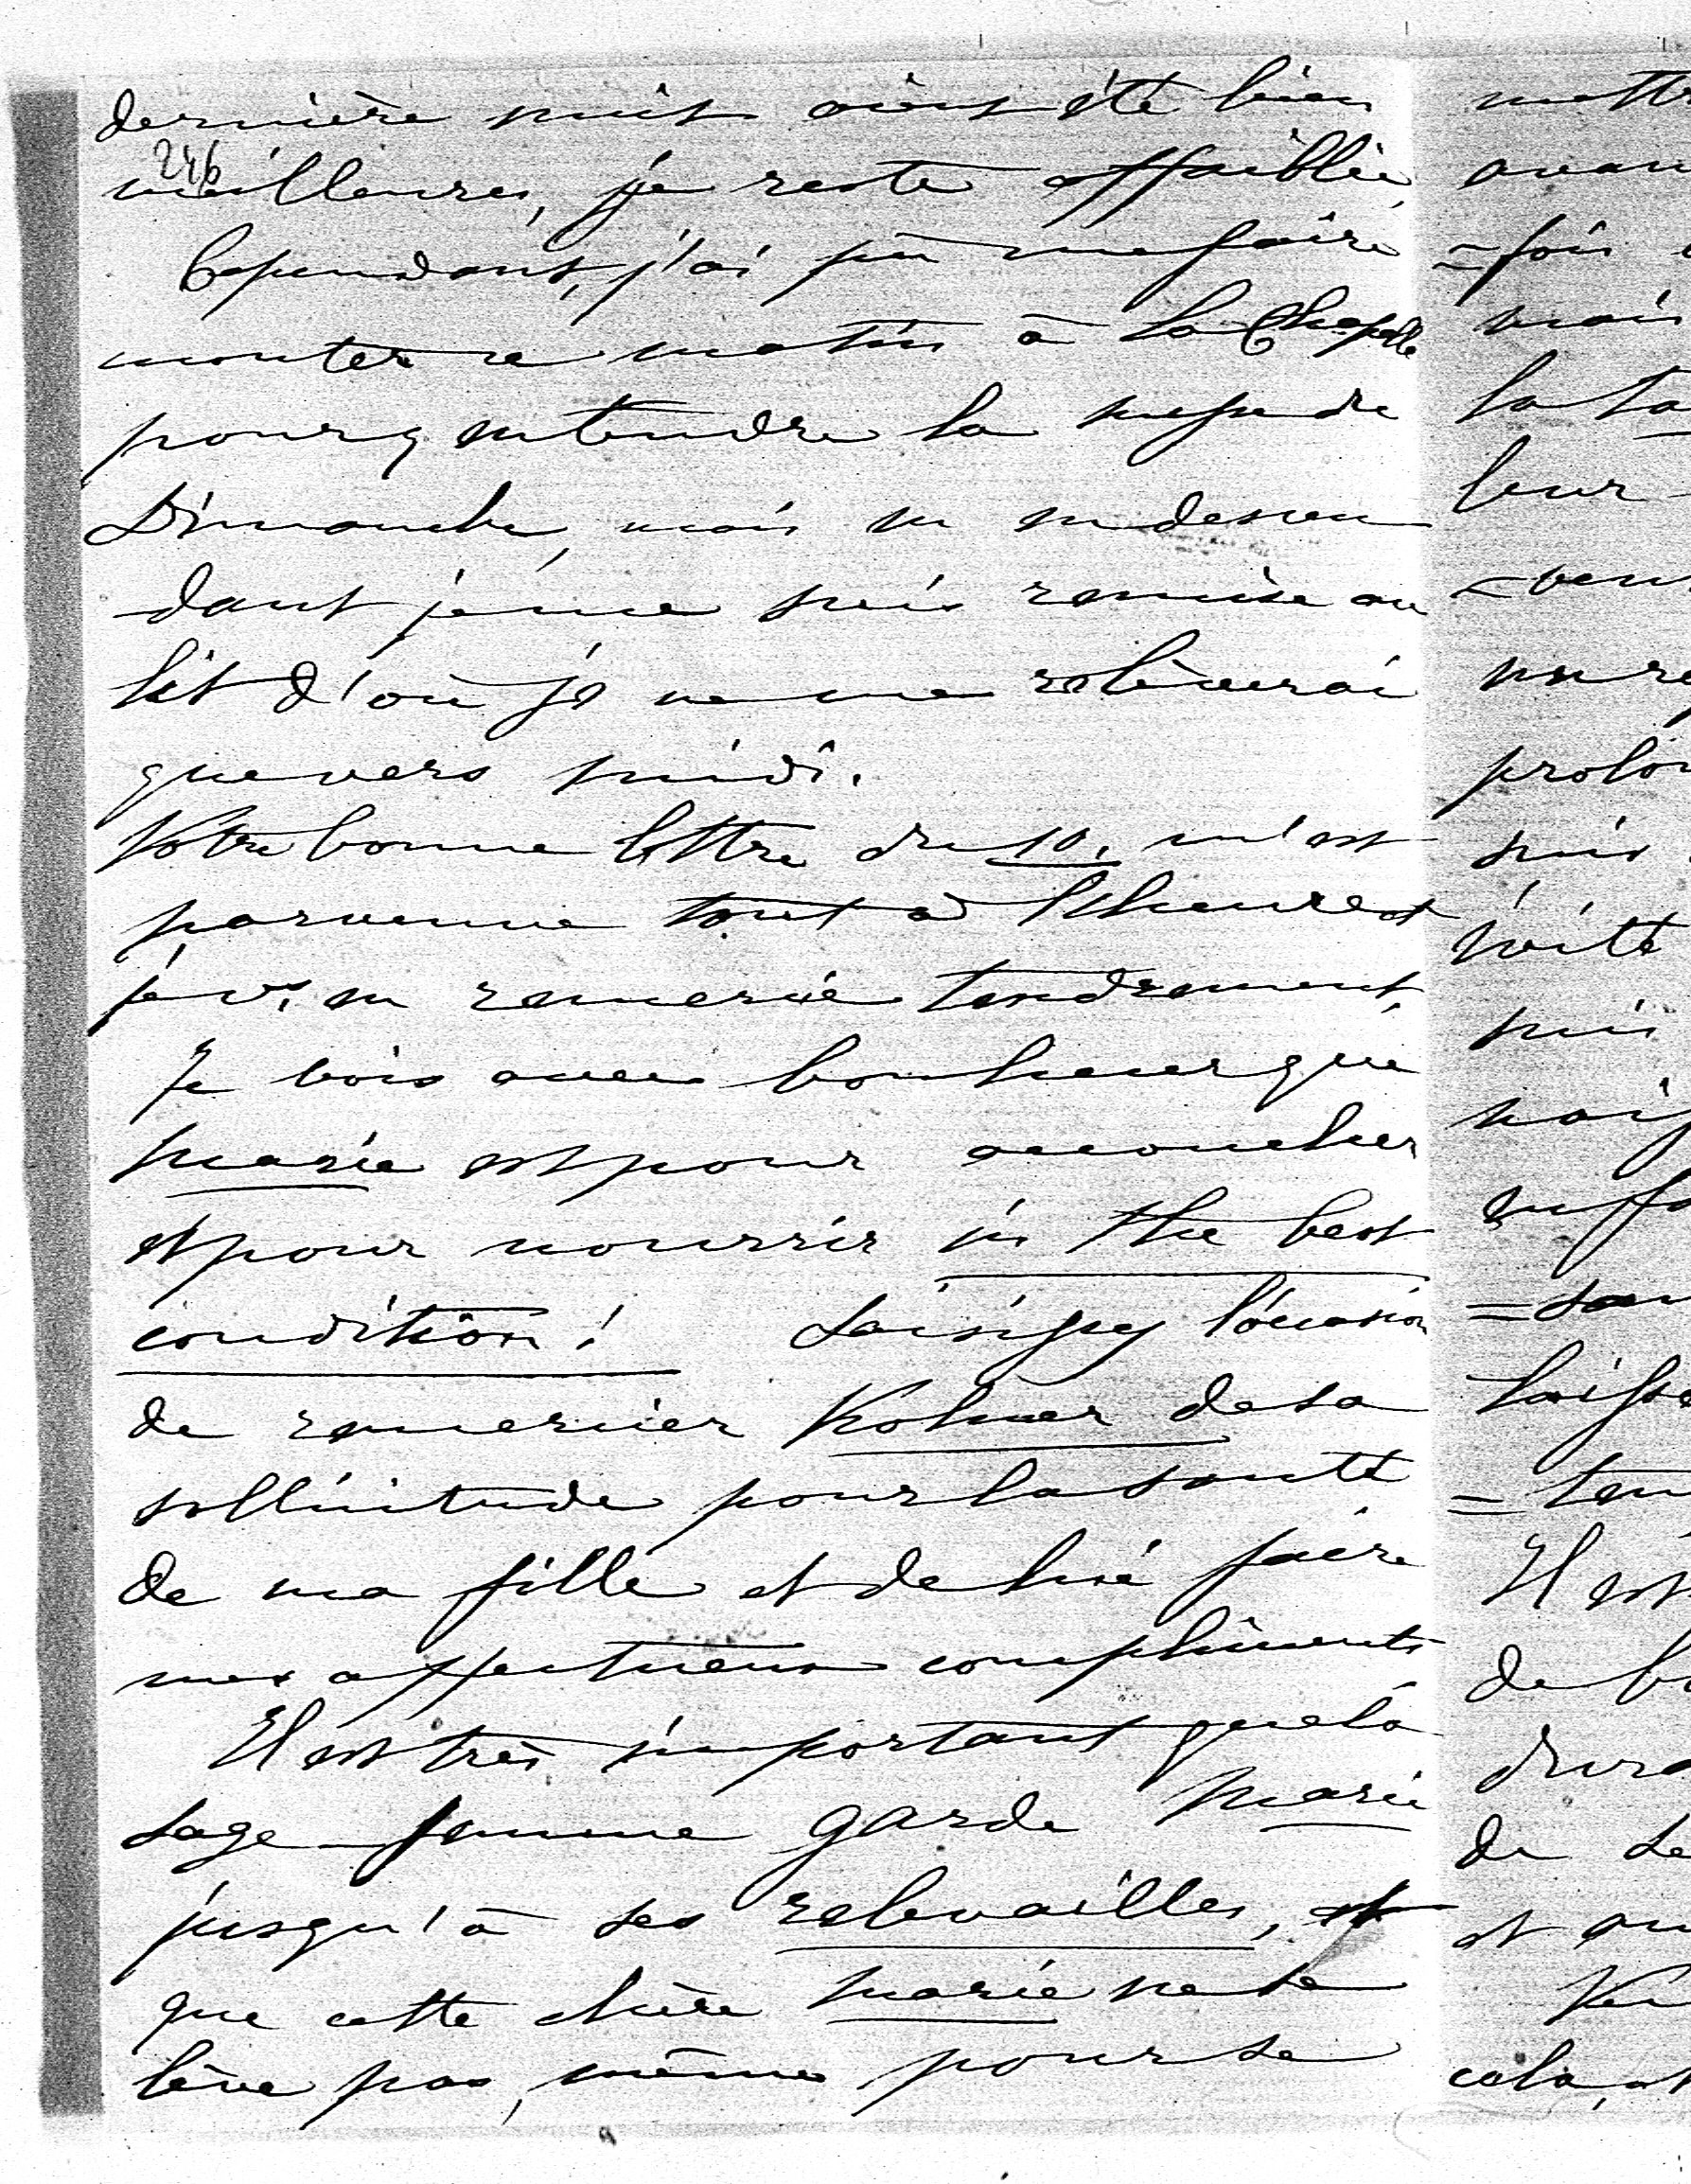 dernière nuit aient été bien
246
meilleures, je reste affaiblie,
Cependant, j'ai pu me faire
monter ce matin à la Chapelle
pour y entendre la messe de
Dimanche, mais en en descen
dant je me suis remise au
lit d'où je ne me relèverai
que vers midi.
Votre bonne lettre du 10, m'est
parvenue tout à l'heure et
je vs. en remercie tendrement,
Je vois avec bonheur que
Marie est pour accoucher
et pour nourrir in the best
condition! Saisissez l'occasion
de remercier de sa
sollicitude pour la santé
de ma fille et de lui faire
mes affectueux compliments
Il est très important que la
sage-femme garde Marie
jusqu'à ses relevailles, et
que cette chère Marie ne se
lève pas, même pour se
mettr
avan
=fois
mais
la
leur
=ven
prolon
suis
suis
Laisse
=ten
Il est
de
de
et
cela, et